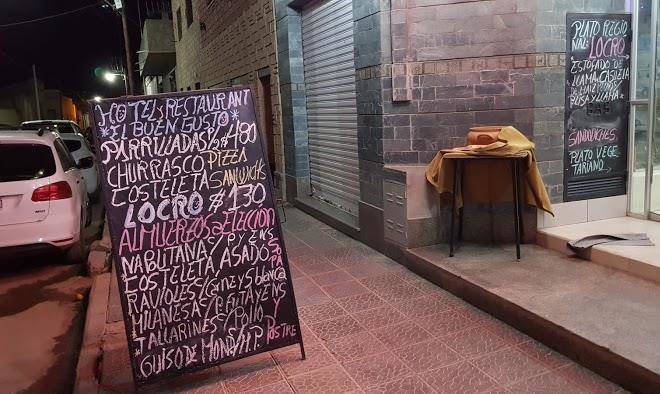 HOTEL & RESTAURANT
*EL BUEN GUSTO*
PARRILLADAS X2 $480
CHURRASCO PIZZA
COSTELETA SANWICHS
LOCRO $130
ALMUERZOS A ELECCION
NAPLITANA S/P Y ENS
*COSTELETA/ASADO
SOPA
RAVIOLES/Carne y S blanca
MILANESAS/P. frita y ens
TALLARINES/Pollo
Y
POSTRE
*GUISO DE MOND/H.P.
PLATO REGIO
NAL: LOCRO
*ESTOFADO DE
LLAMA, CASUELA
SANDWICHES
PLATO VEGE
TARIANO